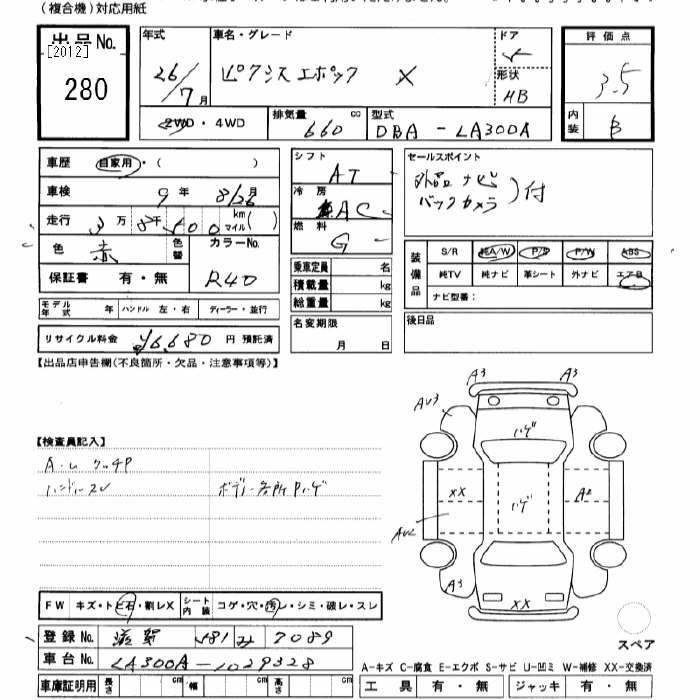 (複合機)対応用紙
出品No.
[2012]
280
年式
26/7月
車名・グレード
ピクシス エポック X
ドア
5
形状
HB
評価点
3.5
内装
B
2WD・4WD
排気量 660 cc
型式 DBA-LA300A
車歴 自家用・( )
車検 9年 8/26月
走行 3万8千500 km マイル( )
色 赤 色替
カラーNo. R40
保証書 有・無
モデル年式 年 ハンドル 左・右 ディーラー・並行
リサイクル料金 ¥6,680 円 預託済
シフト AT
冷房 AC
燃料 G
乗車定員 名
積載量 kg
総重量 kg
名変期限 月 日
セールスポイント
外品ナビ
バックカメラ )付
装備品
S/R 純A/W P/S P/W ABS
純TV 純ナビ 革シート 外ナビ エアB
ナビ型番:
後日品
【出品店申告欄(不良箇所・欠品・注意事項等)】
【検査員記入】
A・U クッチP
ハンドルスレ
ボデー各所Pハゲ
A3 A3
AU3
ハゲ
XX ハゲ A2
AU2
A3
XX
スペア
FW キズ・トビ石・割レX シート内装 コゲ・穴・汚レ・シミ・破レ・スレ
登録No. 滋賀 581 み 7089
車台No. LA300A-1029328
車庫証明用 長さ cm 幅 cm 高さ cm
A-キズ C-腐食 E-エクボ S-サビ U-凹ミ W-補修 XX-交換済
工具 有・無 ジャッキ 有・無